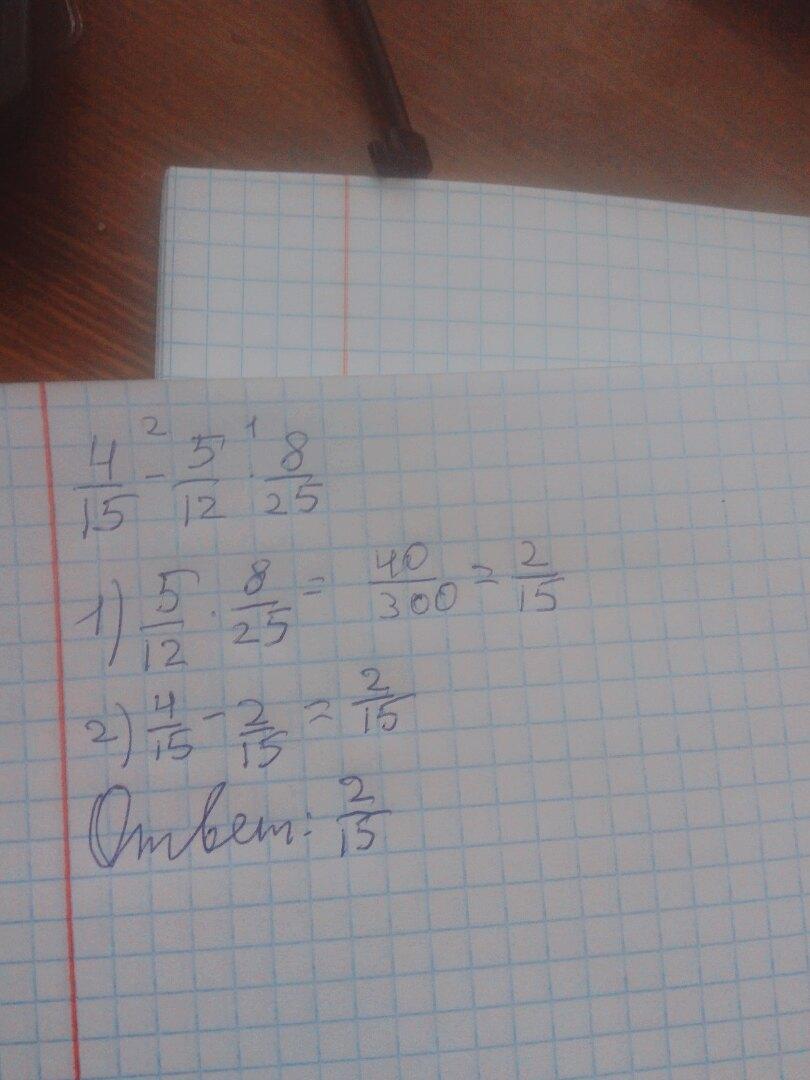 4/15 - 5/12 · 8/25
1) 5/12 · 8/25 = 40/300 = 2/15
2) 4/15 - 2/15 = 2/15
Ответ: 2/15